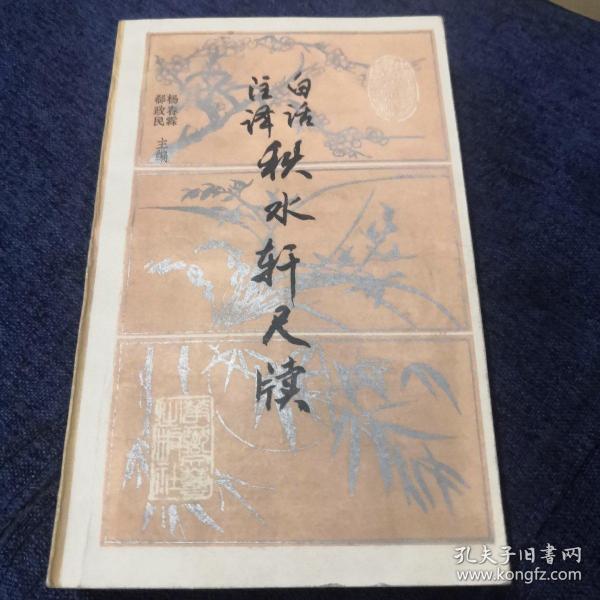 白话
注译
秋水轩尺牍
杨春霖
郗政民 主编
孔夫子旧書网
www.kongfz.com